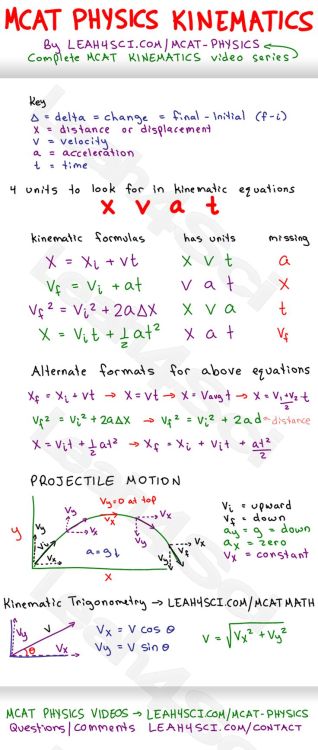 MCAT PHYSICS KINEMATICS
By LEAH4SCI.COM/MCAT-PHYSICS
Complete MCAT KINEMATICS video series
Key
Δ = delta = change = final - Initial (f-i)
X = distance or displacement
V = velocity
a = acceleration
t = time
4 units to look for in kinematic equations
X V a t
kinematic formulas has units missing
X = Xi + vt X V t a
Vf = Vi + at V a t X
Vf² = Vi² + 2aΔX X V a t
X = Vit + 1/2 at² X a t Vf
Alternate formats for above equations
Xf = Xi + Vt → X = Vt → X = Vavg t → X = V1+V2/2 t
Vf² = Vi² + 2aΔX → Vf² = Vi² + 2ad = distance
X = Vit + 1/2 at² → Xf = Xi + Vit + at²/2
PROJECTILE MOTION
Vy=0 at top
Vx
Vy
Vx
Vy
Vx
Vy
Vi
Vx
Vx
Vy
Vf
y
a = gt
X
Vi = upward
Vf = down
ay = g = down
ax = zero
Vx = constant
Kinematic Trigonometry → LEAH4SCI.COM/MCATMATH
Vy
V
θ
Vx
Vx = V cos θ
Vy = V sin θ
V = √Vx² + Vy²
MCAT PHYSICS VIDEOS → LEAH4SCI.COM/MCAT-PHYSICS
Questions/Comments LEAH4SCI.COM/CONTACT
Leah4Sci
Leah4Sci
Leah4Sci